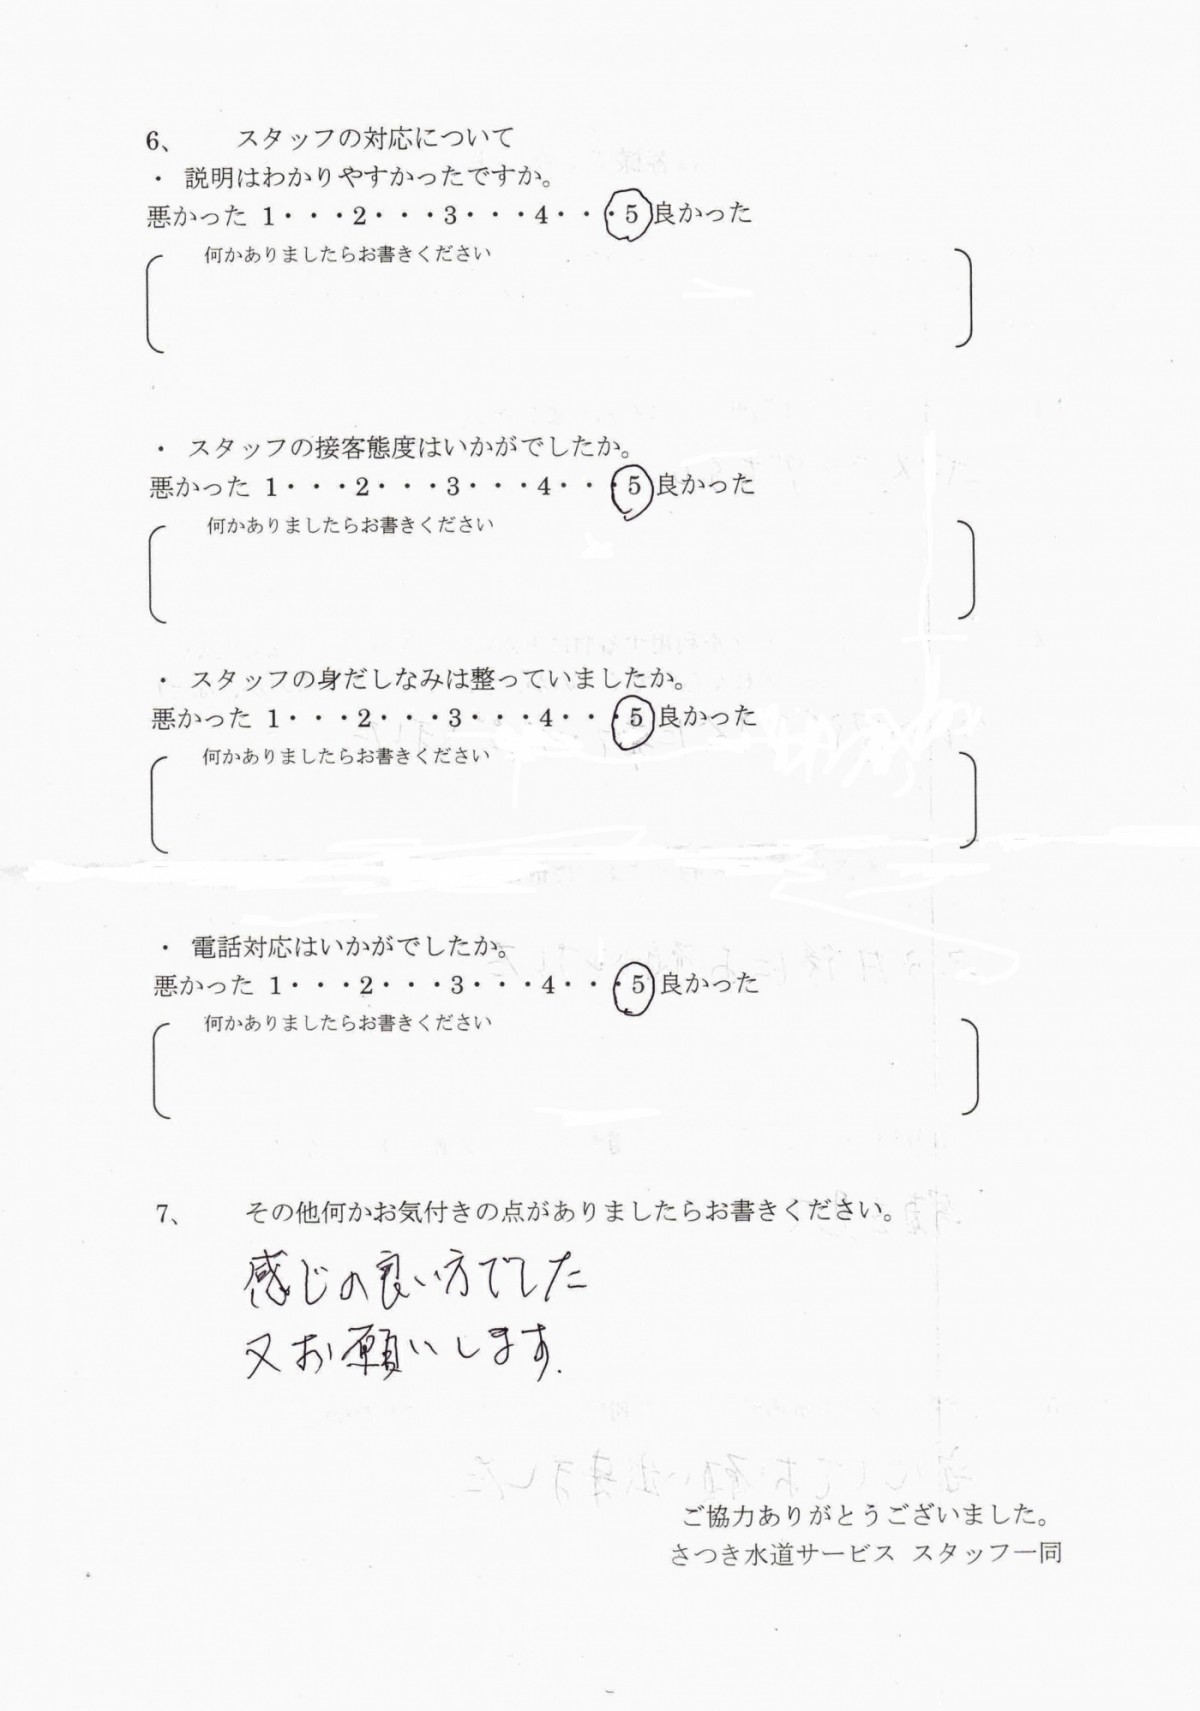 6、 スタッフの対応について
・ 説明はわかりやすかったですか。
悪かった 1・・・2・・・3・・・4・・・5 良かった
何かありましたらお書きください
・ スタッフの接客態度はいかがでしたか。
悪かった 1・・・2・・・3・・・4・・・5 良かった
何かありましたらお書きください
・ スタッフの身だしなみは整っていましたか。
悪かった 1・・・2・・・3・・・4・・・5 良かった
何かありましたらお書きください
・ 電話対応はいかがでしたか。
悪かった 1・・・2・・・3・・・4・・・5 良かった
何かありましたらお書きください
7、 その他何かお気付きの点がありましたらお書きください。
感じの良い方でした
又お願いします.
ご協力ありがとうございました。
さつき水道サービス スタッフ一同